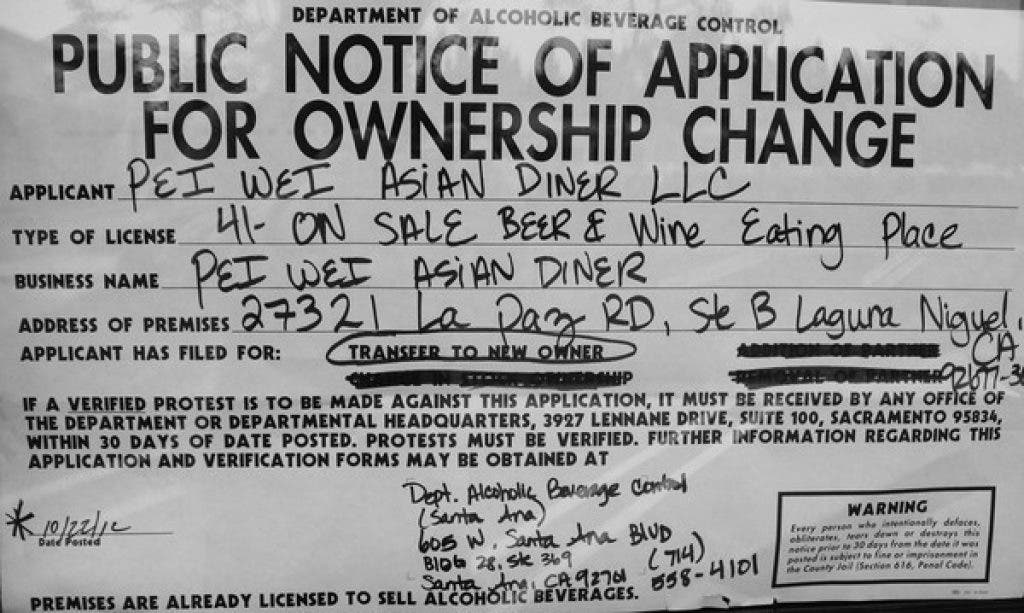 DEPARTMENT OF ALCOHOLIC BEVERAGE CONTROL
PUBLIC NOTICE OF APPLICATION
FOR OWNERSHIP CHANGE
APPLICANT PEI WEI ASIAN DINER LLC
TYPE OF LICENSE 41- ON SALE BEER & Wine Eating Place
BUSINESS NAME PEI WEI ASIAN DINER
ADDRESS OF PREMISES 27321 La Paz RD, Ste B Laguna Niguel,
CA
APPLICANT HAS FILED FOR: TRANSFER TO NEW OWNER ADDITION OF PARTNER
CHANGE IN STOCK OWNERSHIP REMOVAL OF PARTNER 92677-3
IF A VERIFIED PROTEST IS TO BE MADE AGAINST THIS APPLICATION, IT MUST BE RECEIVED BY ANY OFFICE OF
THE DEPARTMENT OR DEPARTMENTAL HEADQUARTERS, 3927 LENNANE DRIVE, SUITE 100, SACRAMENTO 95834,
WITHIN 30 DAYS OF DATE POSTED. PROTESTS MUST BE VERIFIED. FURTHER INFORMATION REGARDING THIS
APPLICATION AND VERIFICATION FORMS MAY BE OBTAINED AT
Dept. Alcoholic Beverage Control
(Santa Ana)
605 W. Santa Ana BLVD
Bldg 28, Ste 369
Santa Ana, CA 92701
(714)
558-4101
* 10/22/12
Date Posted
WARNING
Every person who intentionally defaces,
obliterates, tears down or destroys this
notice prior to 30 days from the date it was
posted is subject to fine or imprisonment in
the County Jail (Section 616, Penal Code).
PREMISES ARE ALREADY LICENSED TO SELL ALCOHOLIC BEVERAGES.